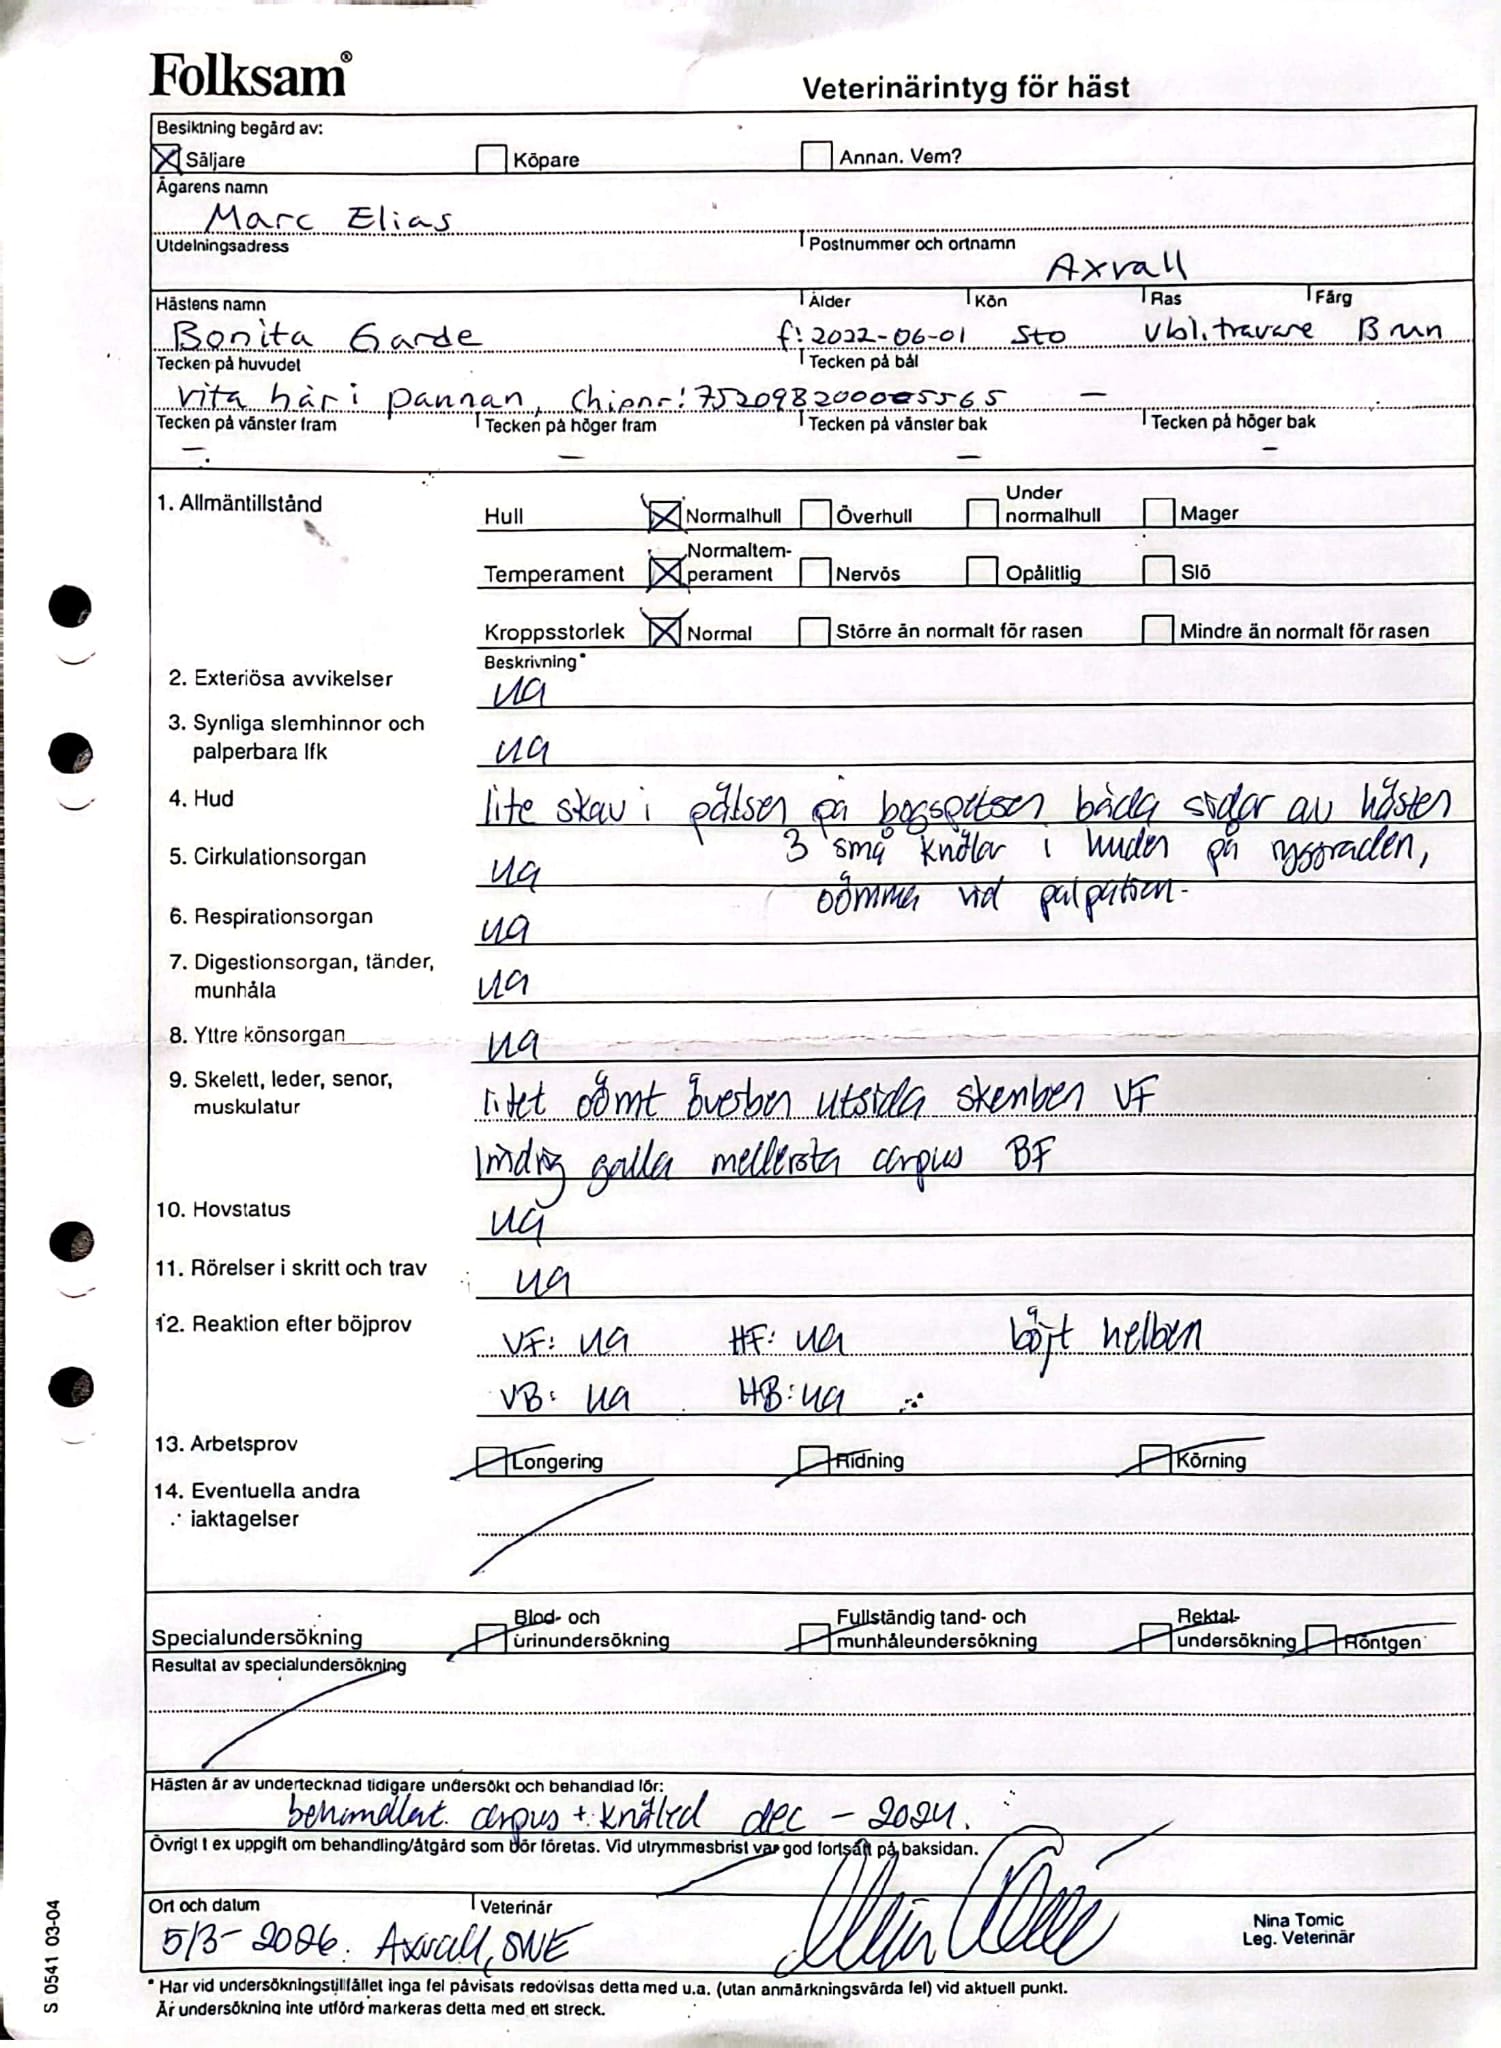 Folksam®
Veterinärintyg för häst
Besiktning begärd av:
Säljare Köpare Annan. Vem?
Ägarens namn
Marc Elias
Utdelningsadress Postnummer och ortnamn
Axvall
Hästens namn Ålder Kön Ras Färg
Bonita Garde f: 2022-06-01 Sto Vbl. travare Brun
Tecken på huvudet Tecken på bål
Vita hår i pannan, Chipnr: 752098200005565 –
Tecken på vänster fram Tecken på höger fram Tecken på vänster bak Tecken på höger bak
– – – –
1. Allmäntillstånd
Hull Normalhull Överhull Under normalhull Mager
Temperament Normaltem-perament Nervös Opålitlig Slö
Kroppsstorlek Normal Större än normalt för rasen Mindre än normalt för rasen
Beskrivning*
2. Exteriösa avvikelser ua
3. Synliga slemhinnor och
palperbara lfk ua
4. Hud lite skav i pälsen på bogspetsen båda sidor av hästen
3 små knölar i huden på ryggraden,
5. Cirkulationsorgan ua
oömma vid palpation.
6. Respirationsorgan ua
7. Digestionsorgan, tänder,
munhåla ua
8. Yttre könsorgan ua
9. Skelett, leder, senor,
muskulatur
litet oömt överben utsida skenben VF
lindrig galla mellersta carpus BF
10. Hovstatus ua
11. Rörelser i skritt och trav ua
12. Reaktion efter böjprov
VF: ua HF: ua böjt helben
VB: ua HB: ua
13. Arbetsprov Longering Ridning Körning
14. Eventuella andra
iaktagelser
Specialundersökning Blod- och urinundersökning Fullständig tand- och munhåleundersökning Rektal-undersökning Röntgen
Resultat av specialundersökning
Hästen är av undertecknad tidigare undersökt och behandlad för:
behandlat carpus + knäled dec - 2024.
Övrigt t ex uppgift om behandling/åtgärd som bör företas. Vid utrymmesbrist var god fortsätt på baksidan.
Ort och datum Veterinär
5/3-2026. Axvall, SWE
Nina Tomic
Leg. Veterinär
* Har vid undersökningstillfället inga fel påvisats redovisas detta med u.a. (utan anmärkningsvärda fel) vid aktuell punkt.
Är undersökning inte utförd markeras detta med ett streck.
S 0541 03-04